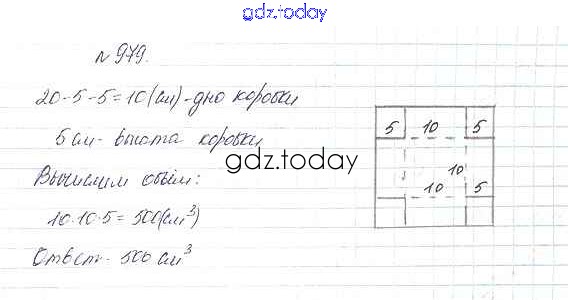 gdz.today
N 979.
20-5-5=10(см)-дно коробки
5 см- высота коробки
gdz.today
Вычислим объём:
10·10·5=500(см³)
Ответ- 500 см³
5 10 5
10
10 5